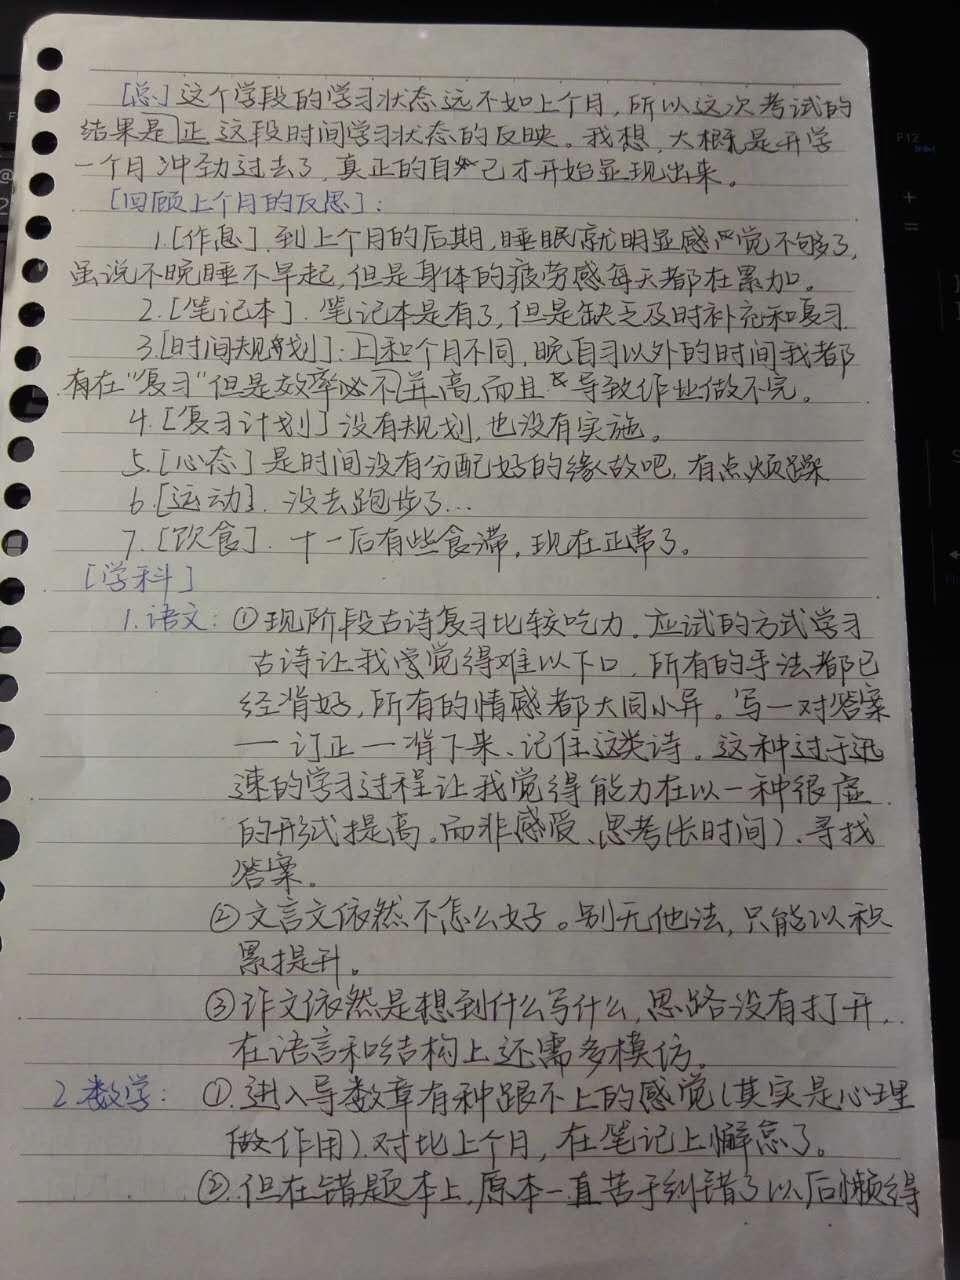 [总] 这个学段的学习状态远不如上个月，所以这次考试的
结果是正这段时间学习状态的反映。我想，大概是开学
一个月冲劲过去了，真正的自己才开始显现出来。
[回顾上个月的反思]：
1.[作息]．到上个月的后期，睡眠就明显感觉不够了，
虽说不晚睡不早起，但是身体的疲劳感每天都在累加。
2.[笔记本]．笔记本是有了，但是缺乏及时补充和复习．
3.[时间规划]：上和个月不同，晚自习以外的时间我都
有在“复习”但是效率必不并高，而且导致作业做不完。
4.[复习计划] 没有规划，也没有实施。
5.[心态] 是时间没有分配好的缘故吧，有点烦躁
6.[运动]．没去跑步了...
7.[饮食]．十一后有些食滞，现在正常了。
[学科]
1.语文：①现阶段古诗复习比较吃力．应试的方式学习
古诗让我觉得难以下口，所有的手法都已
经背好，所有的情感都大同小异。写一对答案
一订正一背下来、记住这类诗．这种过于迅
速的学习过程让我觉得能力在以一种很虚
的形式提高。而非感受、思考(长时间)、寻找
答案。
②文言文依然不怎么好。别无他法，只能以积
累提升。
③作文依然是想到什么写什么，思路没有打开，
在语言和结构上还需多模仿。
2.数学：①．进入导数章有种跟不上的感觉(其实是心理
做作用)．对比上个月，在笔记上懈怠了。
②．但在错题本上，原本一直苦于纠错了以后懒得